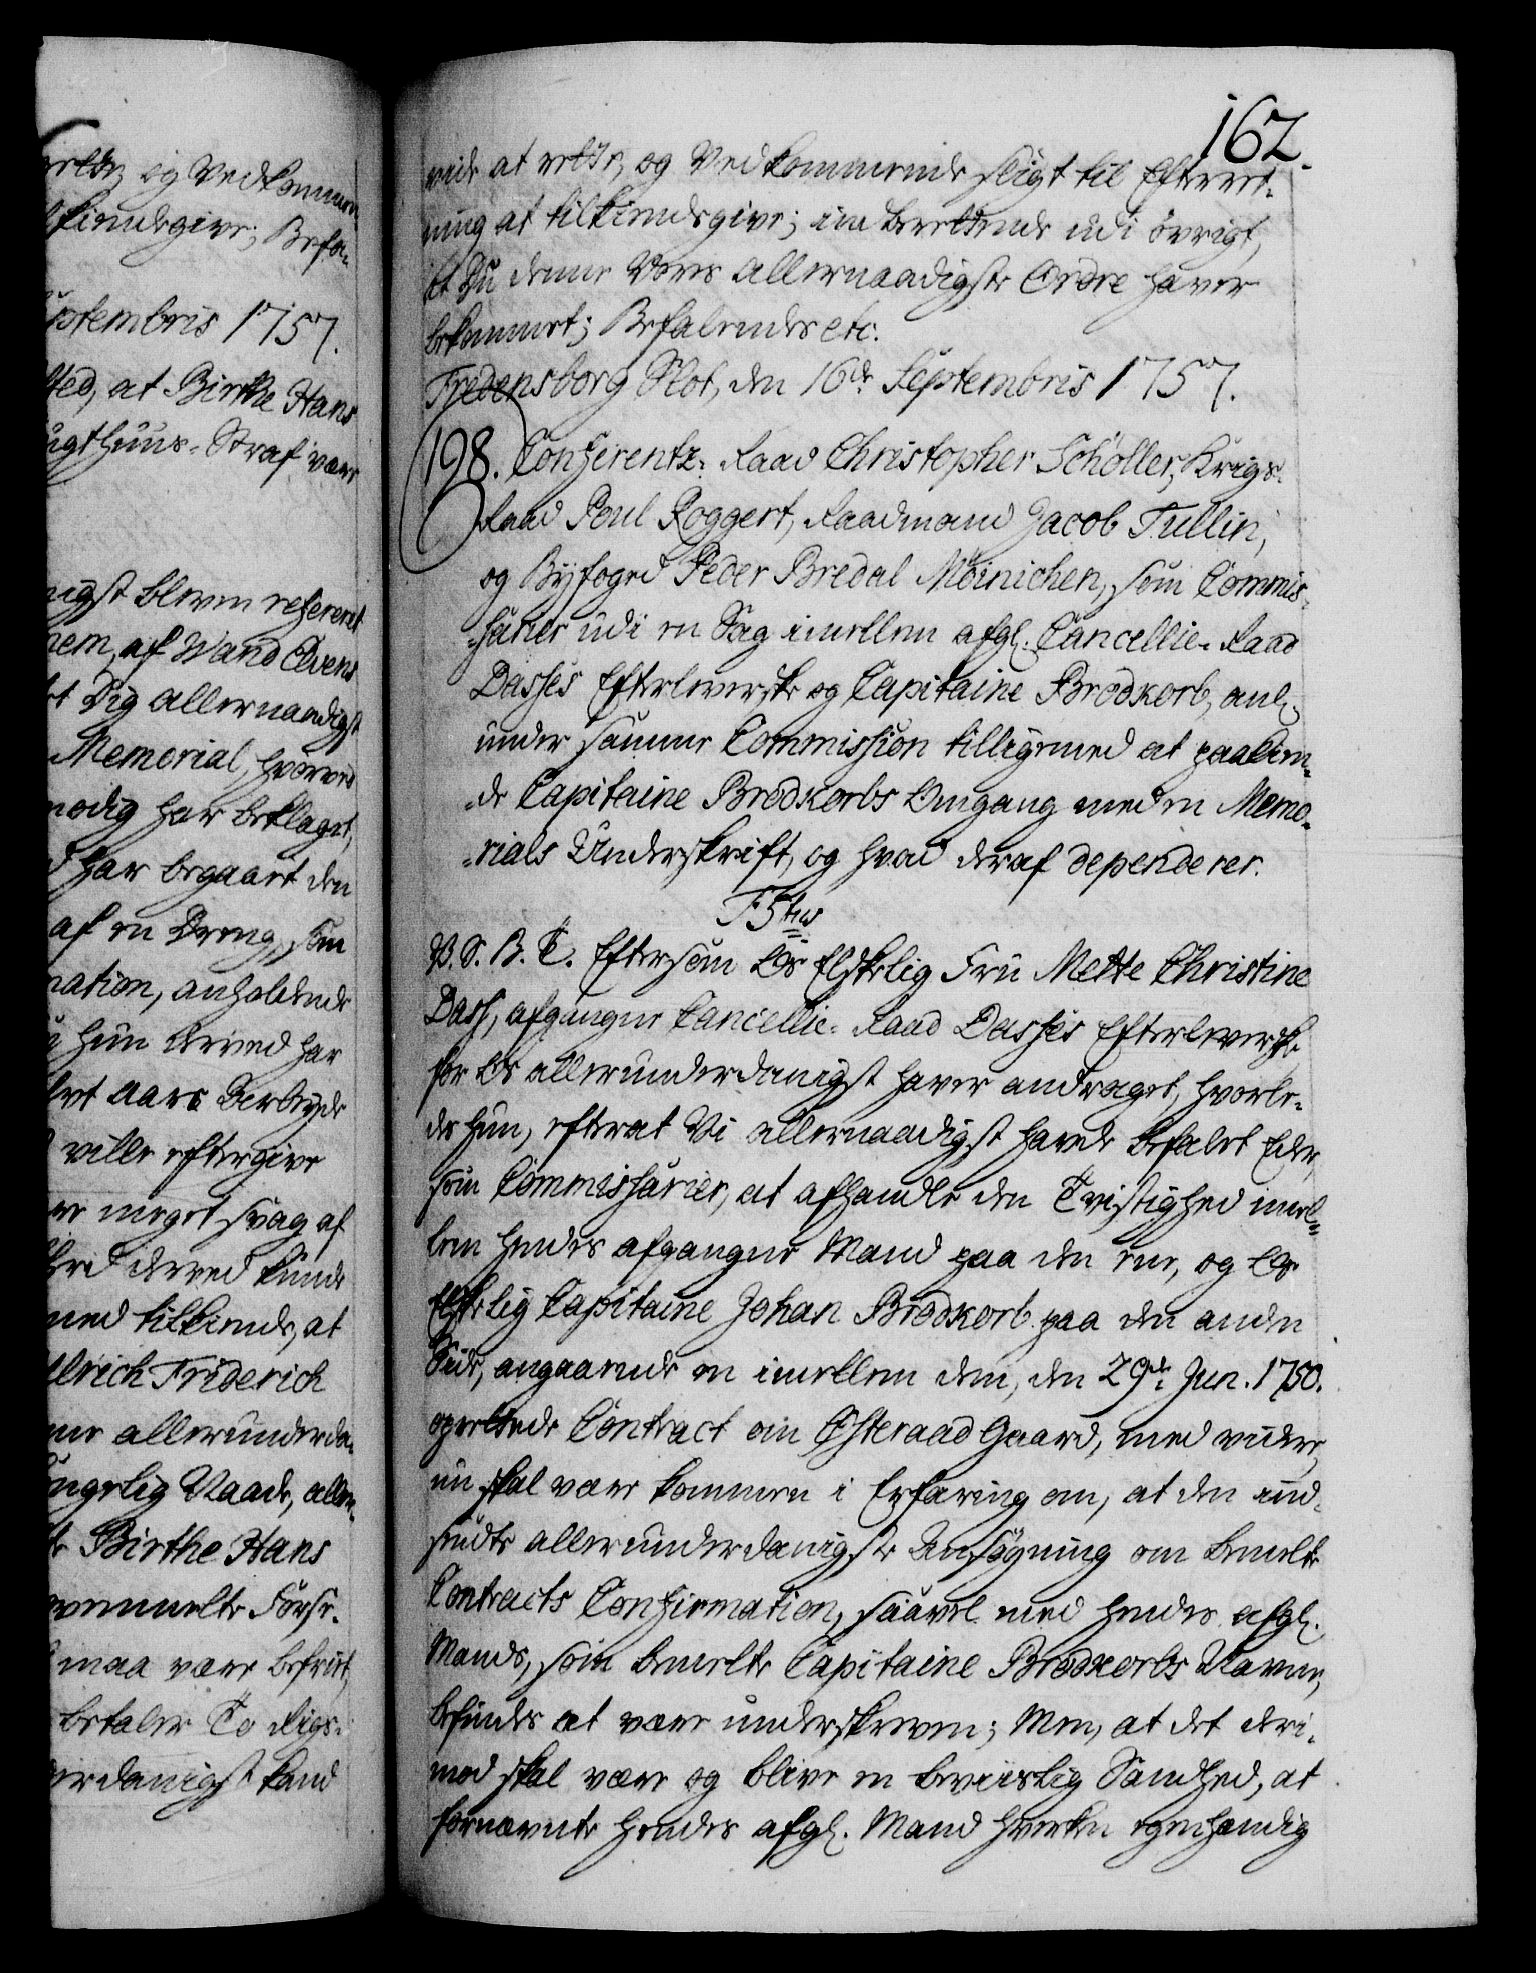 rette, og Vedkommen-
kiendegive; Befa-
Septembris 1757.
sted, at Birthe Hans
ugthuus-Straf være
igst bleven refereret
nem, af Mand Evens
et Dig allernaadigst
Memorial, hvorved
modig har beklaget,
har begaaet den
af en Dreng, som
nation, anholdende
hun derved har
Aars Arbeyde
ville eftergive
meget svag af
hed derved kunde
med tilkiende, at
Ulrich Friderich
allerunderda-
ngelig Naade, aller-
Birthe Hans
ovenmelte Forse-
maa være befriet,
betaler To Rigs-
derdanigst kand
162.
vide at rette, og Vedkommende sligt til Efterret-
ning at tilkiendegive; im berettende udi øvrigt,
at Du denne Vores allernaadigste Ordre haver
bekommet; Befalendes etc.
Fredensborg Slot, den 16de Septembris 1757.
198. Conferentz-Raad Christopher Schøller, Krigs-
Raad Poul Roggert, Raadmand Jacob Tullin,
og Byfoged Peder Bredal Möinichen, som Commis-
-sarier udi en Sag imellem afgl. Cancellie-Raad
Dasses Efterleverske og Capitaine Brodkorb, anl.
under samme Commission tilligemed at paakien-
-de Capitaine Brodkorbs Omgang med en Memo-
-rials Underskrift, og hvad deraf dependerer.
F5tus
V. S. B. T. Eftersom Os Elskelig Fru Mette Christine
Dass, afgangne Cancellie-Raad Dasses Efterleverske
for Os allerunderdanigst haver andraget, hvorle-
des hun, efterat Vi allernaadigst havde befalet Eder,
som Commissarier, at afhandle den Tvistighed imel-
lem hendes afgangne Mand paa den ene, og Os
Elskelig Capitaine Johan Brodkorb paa den anden
Side, angaaende en imellem dem, den 29de Jun. 1750.
oprettede Contract om Østeraad Gaard, med videre,
nu skal være kommen i Erfaring om, at den ind-
sendte allerunderdanigste Ansøgning om bemelte
Contracts Confirmation, saavel med hendes afgl.
Mands, som bemelte Capitaine Brodkorbs Navne,
befindes at være underskreven; Men, at det deri-
mod skal være og blive en beviislig Sandhed, at
fornævnte hendes afgl. Mand hverken egenhændig